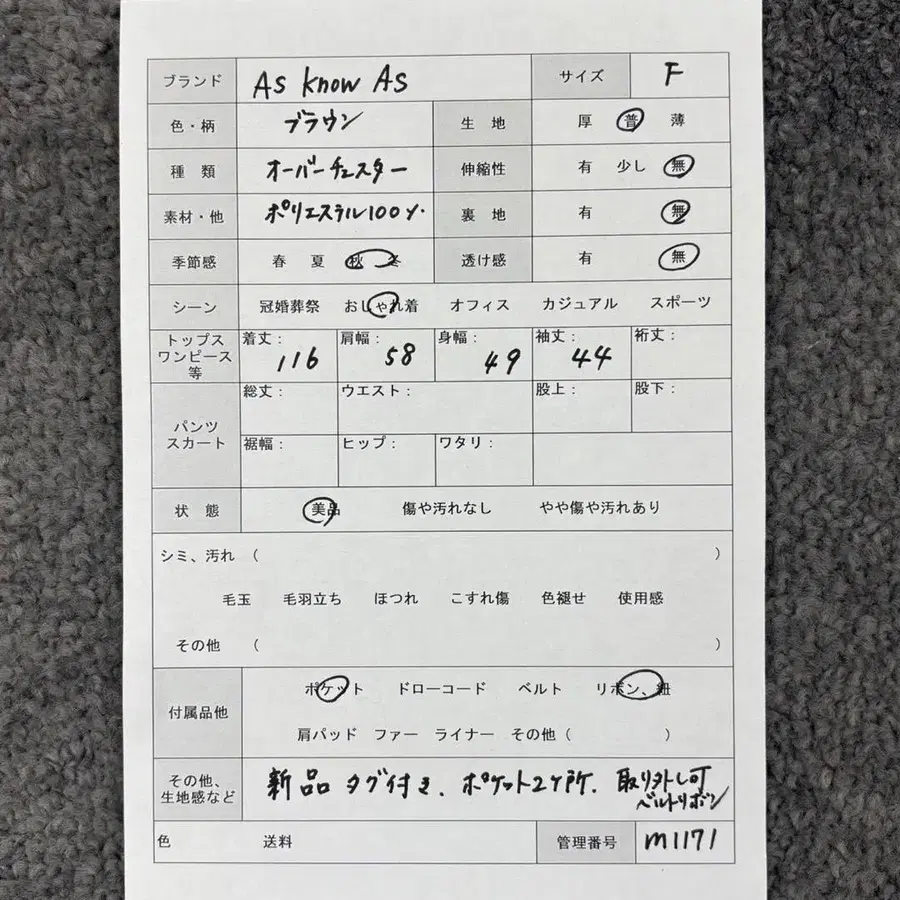 ブランド As know As サイズ F
色・柄 ブラウン 生地 厚 普 薄
種類 オーバーチェスター 伸縮性 有 少し 無
素材・他 ポリエステル100%. 裏地 有 無
季節感 春 夏 秋 冬 透け感 有 無
シーン 冠婚葬祭 おしゃれ着 オフィス カジュアル スポーツ
トップス ワンピース 等 着丈: 116 肩幅: 58 身幅: 49 袖丈: 44 裄丈:
パンツ スカート 総丈: ウエスト: 股上: 股下:
裾幅: ヒップ: ワタリ:
状態 美品 傷や汚れなし やや傷や汚れあり
シミ、汚れ ( )
毛玉 毛羽立ち ほつれ こすれ傷 色褪せ 使用感
その他 ( )
付属品他 ポケット ドローコード ベルト リボン、紐
肩パッド ファー ライナー その他 ( )
その他、生地感など 新品 タグ付き、ポケット2ケ所、取り外し可
ベルトリボン
色 送料 管理番号 m1171